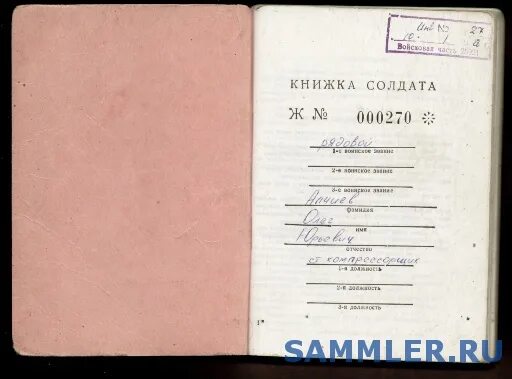 Инв N 27
Войсковая часть
КНИЖКА СОЛДАТА
Ж № 000270
рядовой
1-е воинское звание
2-е воинское звание
3-е воинское звание
Апишев
фамилия
Олег
имя
Юрьевич
отчество
ст компрессорщик
1-я должность
2-я должность
3-я должность
1*
SAMMLER.RU